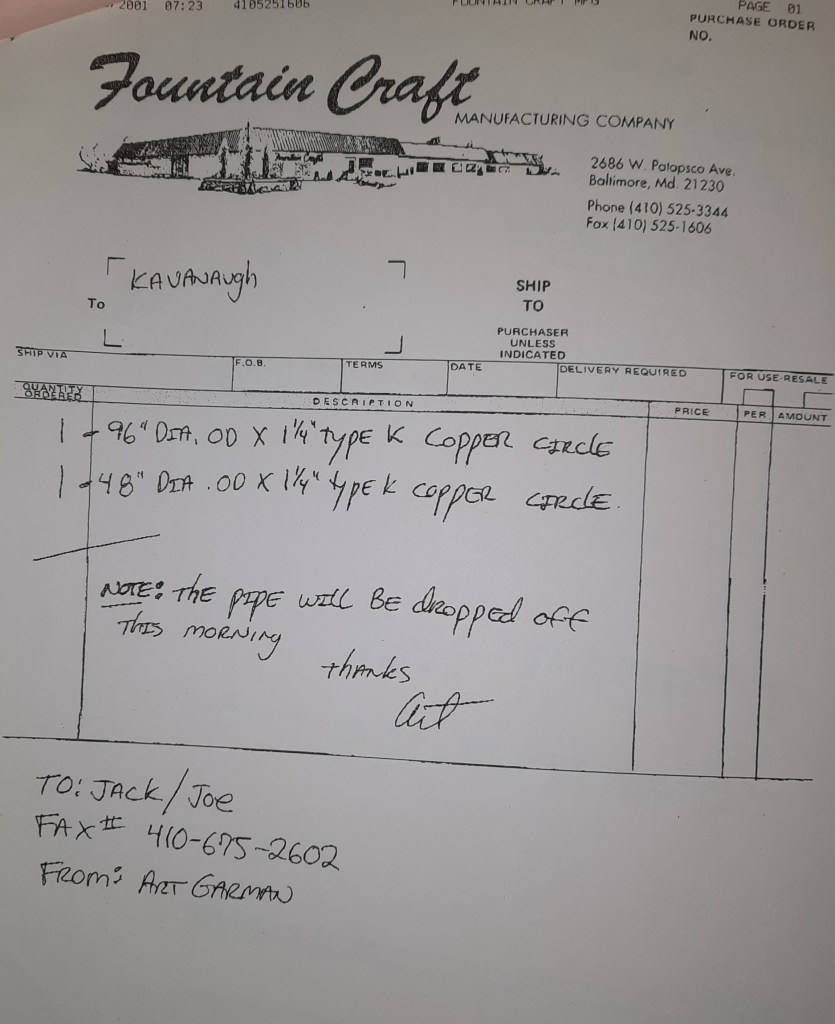 2001 07:23 4105251606 FOUNTAIN CRAFT MFG PAGE 01
PURCHASE ORDER
NO.
Fountain Craft
MANUFACTURING COMPANY
2686 W. Patapsco Ave.
Baltimore, Md. 21230
Phone (410) 525-3344
Fax (410) 525-1606
To KAVANAugh
SHIP
TO
PURCHASER
UNLESS
INDICATED
SHIP VIA F.O.B. TERMS DATE DELIVERY REQUIRED FOR USE-RESALE
QUANTITY ORDERED DESCRIPTION PRICE PER AMOUNT
1 - 96" DIA. OD X 1 1/4" type K COPPER CIRCLE
1 - 48" DIA .OD X 1 1/4" type K COPPER CIRCLE.
NOTE: THE PIPE WILL BE dropped off
THIS MORNING
thanks
Art
TO: JACK/JOE
FAX# 410-675-2602
FROM: ART GARMAN